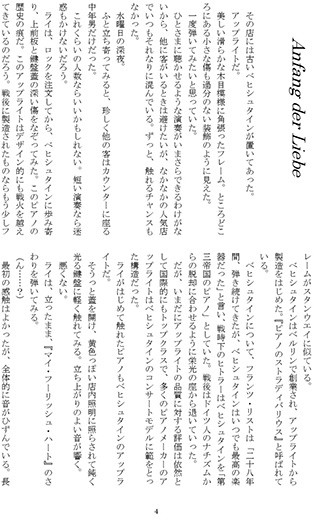 Anfang der Liebe
その店には古いベヒシュタインが置いてあった。
アップライトだ。
美しい滑らかな木目模様に角張ったフレーム。ところどこ
ろにある小さな傷も過分のない装飾のように見えた。
一度弾いてみたいと思っていた。
ひとさまに聴かせるような演奏がいまさらできるわけがな
いから、他に客がいるときは避けたいが、なかなかの人気店
でいつもそれなりに混んでいる。ずっと、触れるチャンスも
なかった。
水曜日の深夜。
ふと立ち寄ってみると、珍しく他の客はカウンターに座る
中年男だけだった。
これくらいの人数ならいいかもしれない。短い演奏なら迷
惑もかけないだろう。
ライは、ロックを注文してから、ベヒシュタインに歩み寄
り、上前板と鍵盤蓋の浅い傷をなぞってみた。このピアノの
歴史の痕だ。このアップライトはデザイン的にも戦火を越え
てきているのだろう。戦後に製造されたものならもう少しフ
レームがスタンウエイに似ている。
ベヒシュタインはベルリンで創業され、アップライトから
製造をはじめた『ピアノのストラディバリウス』と呼ばれて
いる。
ベヒシュタインについて、フランツ・リストは「二十八年
間、弾き続けてきたが、ベヒシュタインはいつでも最高の楽
器だった」と言い、戦時下のヒトラーはベヒシュタインを「第
三帝国のピアノ」としていた。戦後はドイツ人のナチズムか
らの脱却に合わせるように栄光の座から退いていった。
だが、いまだにアップライトの品質に対する評価は依然と
して国際的にもトップクラスで、多くのピアノメーカーのア
ップライトはベヒシュタインのコンサートモデルに範をとっ
た構造だった。
ライがはじめて触れたピアノもベヒシュタインのアップラ
イトだ。
そうっと蓋を開け、黄色っぽい店内照明に照らされて鈍く
光る鍵盤に軽く触れてみる。立ち上がりのよい音が響く。
悪くない。
ライは、立ったまま、『マイ・フーリッシュ・ハート』のさ
わりを弾いてみる。
（ん……？）
最初の感触はよかったが、全体的に音がひずんでいる。長
4